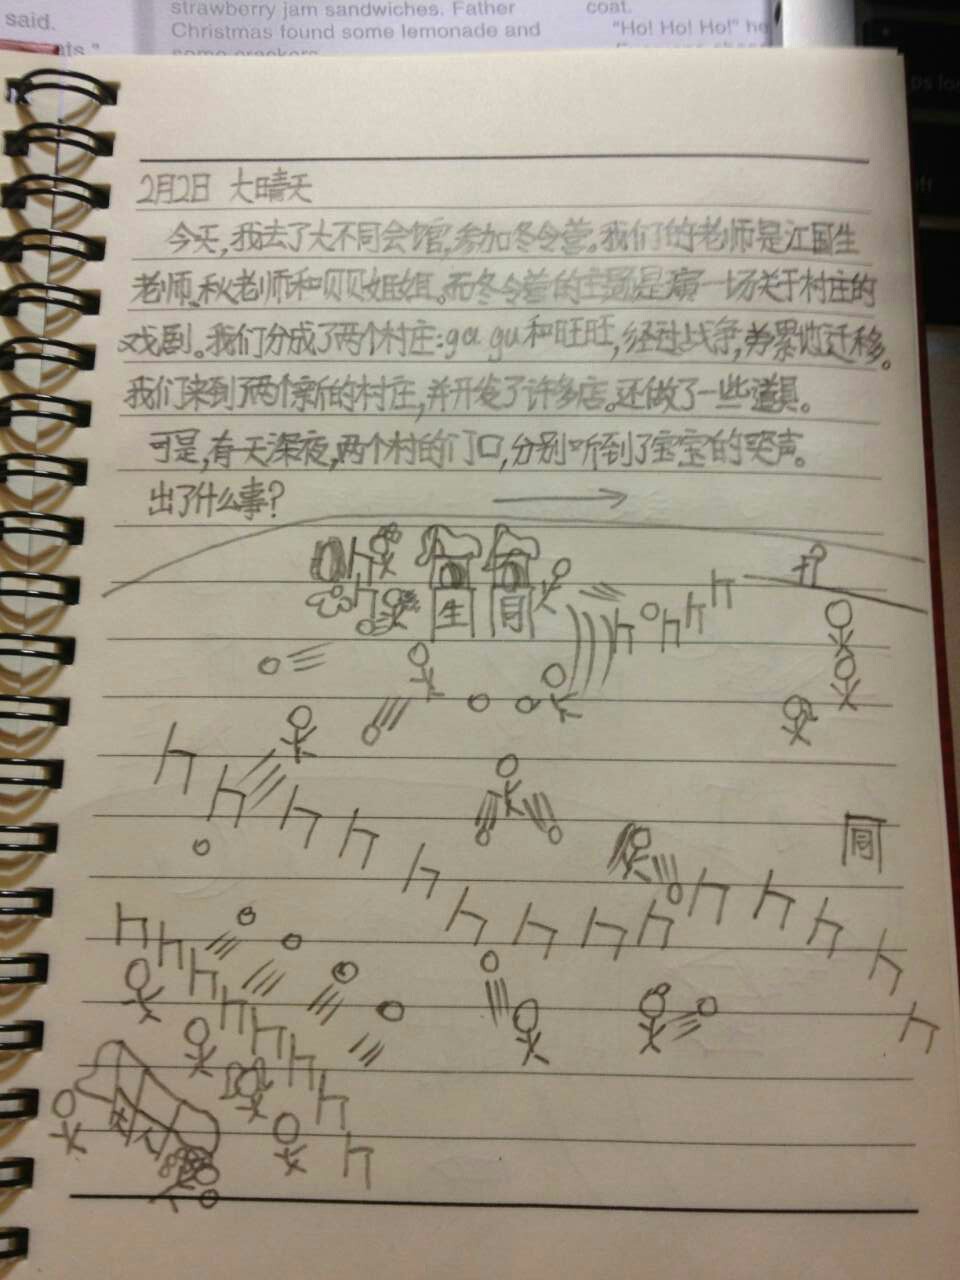 said.
strawberry jam sandwiches. Father
Christmas found some lemonade and
some crackers
coat.
"Ho! Ho! Ho!" he
2月2日 大晴天
今天,我去了大不同会馆,参加冬令营。我们的老师是江国生
老师、秋老师和贝贝姐姐。而冬令营的主题是演一场关于村庄的
戏剧。我们分成了两个村庄:gu gu和旺旺,经过战争,劳累地迁移。
我们来到了两个新的村庄,并开发了许多店。还做了一些道具。
可是,有天深夜,两个村的门口,分别听到了宝宝的哭声。
出了什么事?
生
同